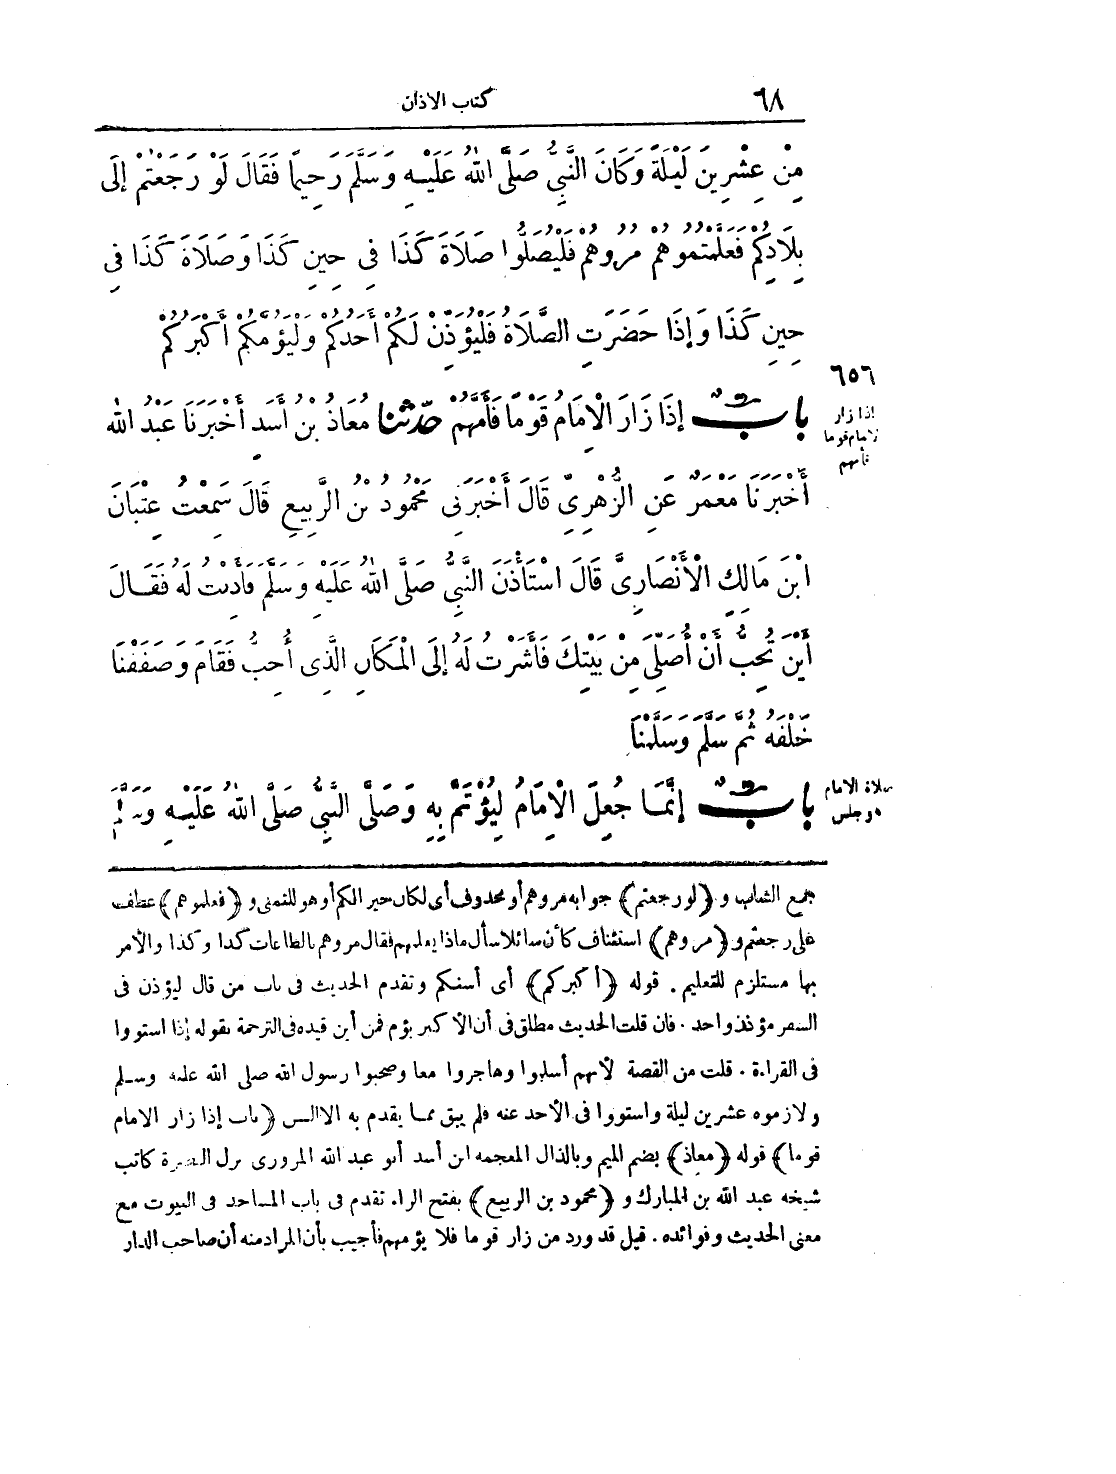 ٦٨ كتاب الاذان
مِنْ عِشْرِينَ لَيْلَةً وَكَانَ النَّبِىُّ صَلَّى اللهُ عَلَيْهِ وَسَلَّمَ رَحِيمًا فَقَالَ لَوْ رَجَعْتُمْ إِلَى
بِلَادِكُمْ فَعَلَّمْتُمُوهُمْ مُرُوهُمْ فَلْيُصَلُّوا صَلَاةَ كَذَا فِى حِينِ كَذَا وَصَلَاةَ كَذَا فِى
حِينِ كَذَا وَإِذَا حَضَرَتِ الصَّلَاةُ فَلْيُؤَذِّنْ لَكُمْ أَحَدُكُمْ وَلْيَؤُمَّكُمْ أَكْبَرُكُمْ
٦٥٦
إذا زار
الامام قوما
فأمهم
بابٌ إِذَا زَارَ الْإِمَامُ قَوْمًا فَأَمَّهُمْ حَدَّثَنَا مُعَاذُ بْنُ أَسَدٍ أَخْبَرَنَا عَبْدُ اللهِ
أَخْبَرَنَا مَعْمَرٌ عَنِ الزُّهْرِىِّ قَالَ أَخْبَرَنِى مَحْمُودُ بْنُ الرَّبِيعِ قَالَ سَمِعْتُ عِتْبَانَ
ابْنَ مَالِكٍ الْأَنْصَارِىَّ قَالَ اسْتَأْذَنَ النَّبِىُّ صَلَّى اللهُ عَلَيْهِ وَسَلَّمَ فَأَذِنْتُ لَهُ فَقَالَ
أَيْنَ تُحِبُّ أَنْ أُصَلِّىَ مِنْ بَيْتِكَ فَأَشَرْتُ لَهُ إِلَى الْمَكَانِ الَّذِى أُحِبُّ فَقَامَ وَصَفَفْنَا
خَلْفَهُ ثُمَّ سَلَّمَ وَسَلَّمْنَا
صلاة الامام
وجلس
بابٌ إِنَّمَا جُعِلَ الْإِمَامُ لِيُؤْتَمَّ بِهِ وَصَلَّى النَّبِىُّ صَلَّى اللهُ عَلَيْهِ وَسَلَّمَ
جمع الشاب و (لو رجعتم) جوابه مروهم أو محذوف أى لكان خيرا لكم أو هو للتمنى و (فعلموهم) عطف
على رجعتم و (مروهم) استئناف كأن سائلا سأل ماذا يعلمهم فقال مروهم بالطاعات كذا وكذا والأمر
بها مستلزم للتعليم . قوله (أكبركم) أى أسنكم وتقدم الحديث فى باب من قال ليؤذن فى
السفر مؤذن واحد . فان قلت الحديث مطلق فى أن الأكبر يؤم فمن أين قيده فى الترجمة بقوله إذا استووا
فى القراءة . قلت من القصة لأنهم أسلموا وهاجروا معا وصحبوا رسول الله صلى الله عليه وسلم
ولازموه عشرين ليلة واستووا فى الأخذ عنه فلم يبق مما يقدم به الا السن (باب إذا زار الامام
قوما) قوله (معاذ) بضم الميم وبالذال المعجمة ابن أسد أبو عبد الله المروزى نزل البصرة كاتب
شيخه عبد الله بن المبارك و (محمود بن الربيع) بفتح الراء تقدم فى باب المساجد فى البيوت مع
معنى الحديث وفوائده . قيل قد ورد من زار قوما فلا يؤمهم فأجيب بأن المراد منه أن صاحب الدار